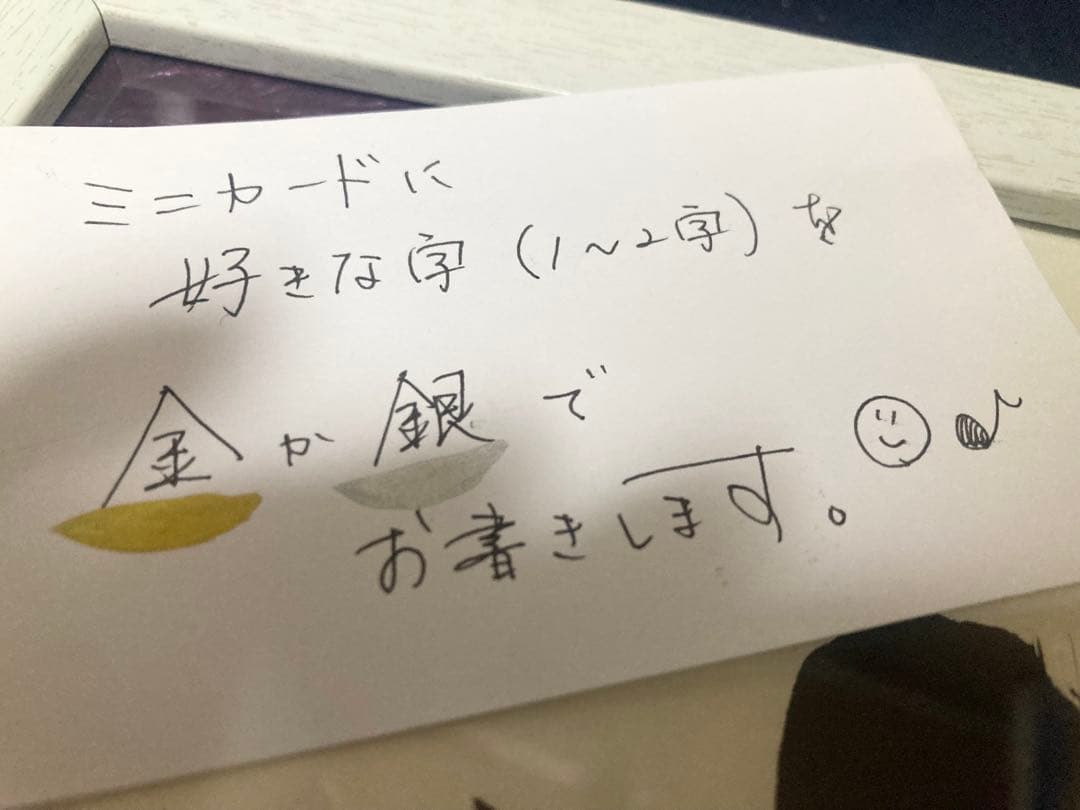 ミニカードに
好きな字(1~2字)を
金か銀で
お書きします。